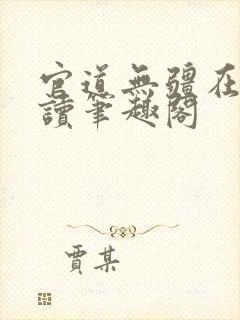 官道無疆在
讀筆趣閣
賈某